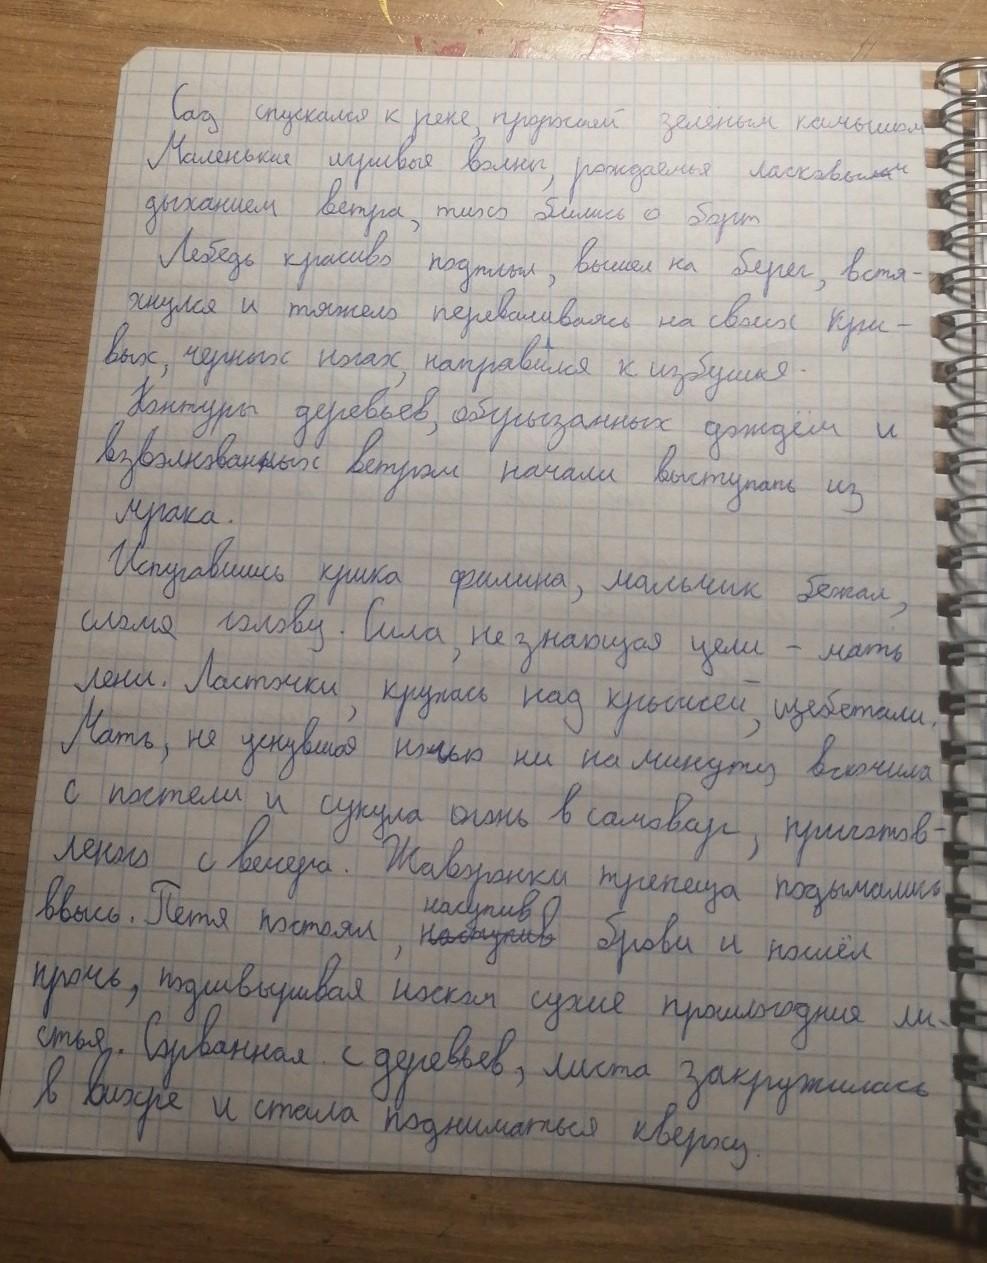 Сад спускался к реке, проросшей зелёным камышом
Маленькие игривые волны, рождаемые ласковым
дыханием ветра, тихо бились о борт
Лебедь красиво подплыл, вышел на берег, встя-
хнулся и тяжело переваливаясь на своих кри-
вых, черных ногах, направился к избушке.
Контуры деревьев, обрызганных дождём и
взволнованных ветром начали выступать из
мрака.
Испугавшись крика филина, мальчик бежал,
сломя голову. Сила, не знающая цели - мать
лени. Ласточки, кружась над крышей, щебетали.
Мать, не уснувшая ночью ни на минуту, вскочила
с постели и сунула огонь в самовар, приготов-
леного с вечера. Жаворонки трепеща подымались
ввысь. Петя постоял, насупив брови и пошёл
прочь, подшвыривая носком сухие прошлогодние ли-
стья. Сорванная с деревьев, листа закружилась
в вихре и стала подниматься кверху.